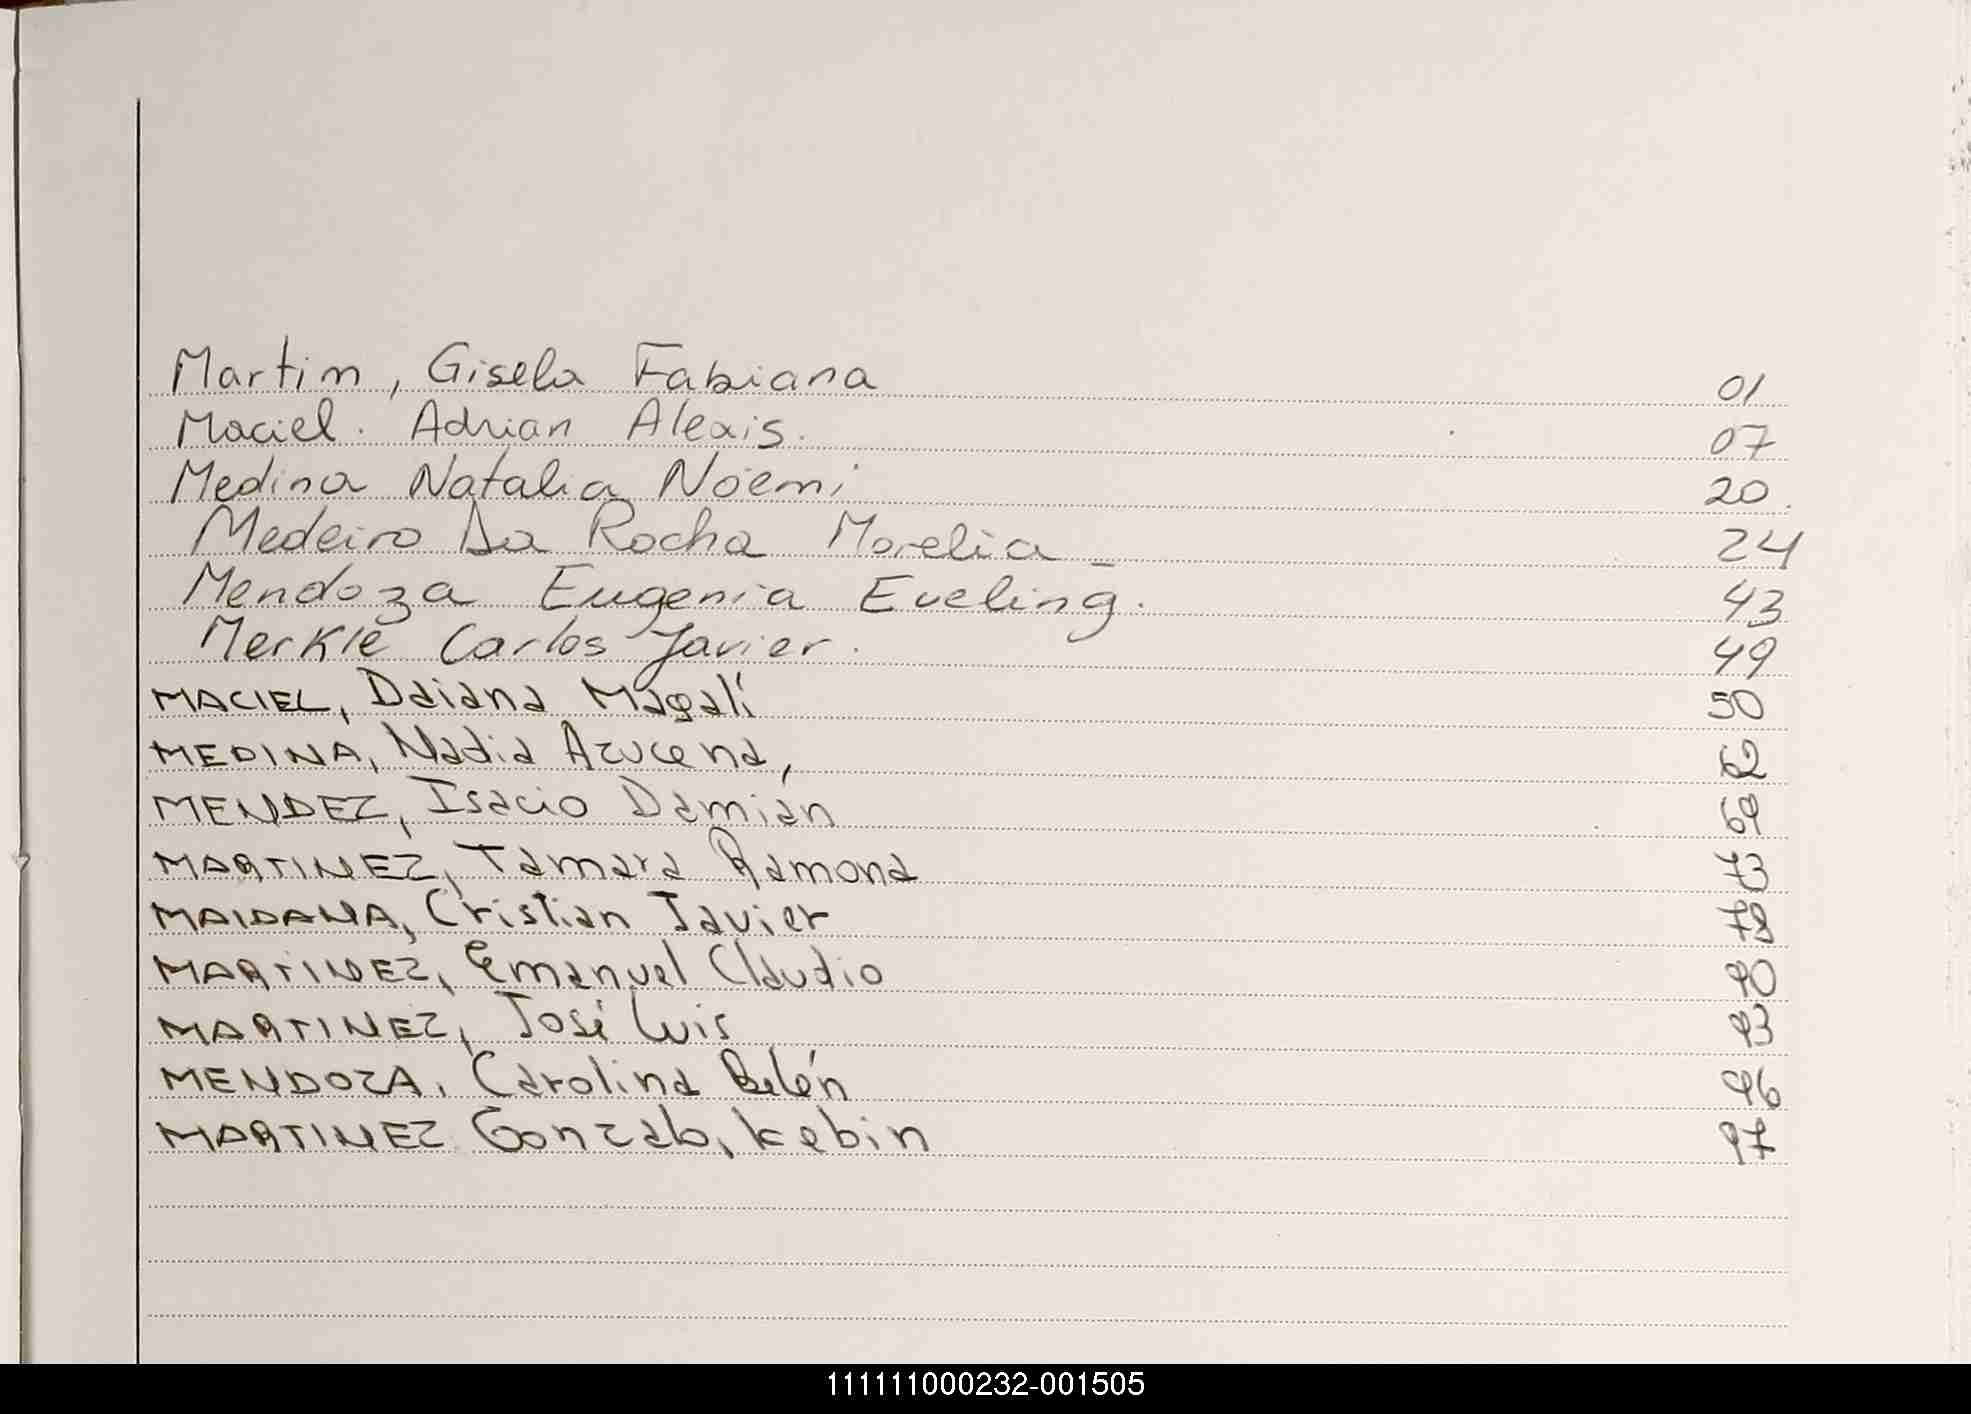 Martin, Gisela Fabiana 01
Maciel. Adrian Alexis. 07
Medina Natalia Noemi 20
Medeiro Da Rocha Morelia 24
Mendoza Eugenia Eveling. 43
Merkle Carlos Javier. 49
MACIEL, Daiana Magalí 50
MEDINA, Nadia Azucena, 62
MENDEZ, Isacio Damián 69
MARTINEZ, Tamara Ramona 73
MAIDANA, Cristian Javier 78
MARTINEZ, Emanuel Claudio 90
MARTINEZ, José Luis 93
MENDOZA, Carolina Belén 96
MARTINEZ Gonzalo, kebin 97
111111000232-001505